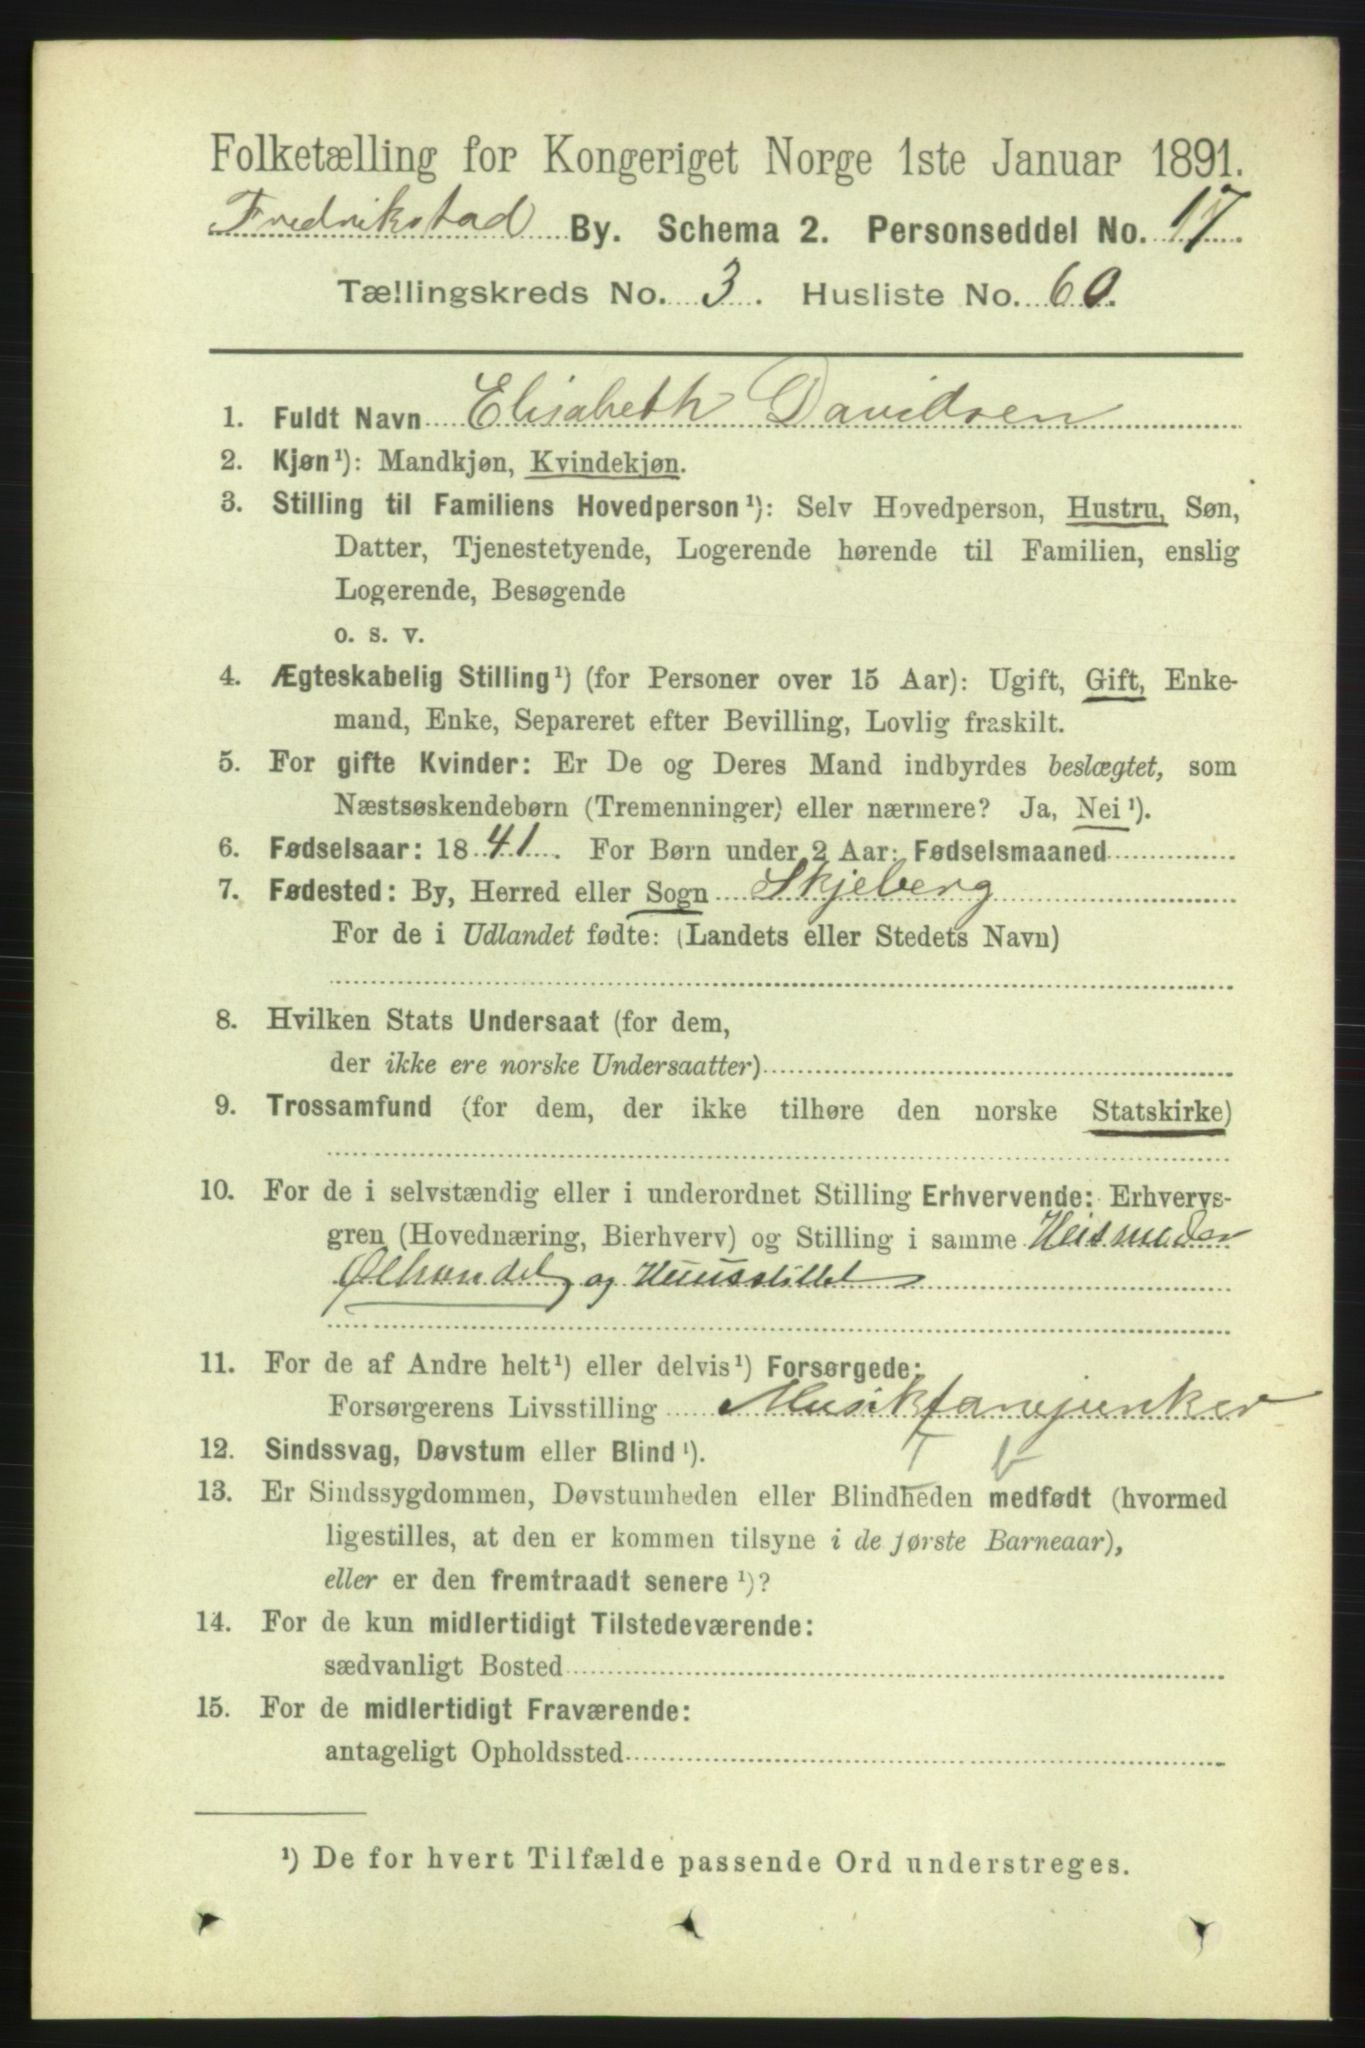 Folketælling for Kongeriget Norge 1ste Januar 1891.
Fredrikstad By. Schema 2. Personseddel No. 17.
Tællingskreds No. 3. Husliste No. 60.
1. Fuldt Navn Elisabeth Davidsen
2. Kjøn¹): Mandkjøn, Kvindekjøn.
3. Stilling til Familiens Hovedperson¹): Selv Hovedperson, Hustru, Søn,
Datter, Tjenestetyende, Logerende hørende til Familien, enslig
Logerende, Besøgende
o. s. v.
4. Ægteskabelig Stilling¹) (for Personer over 15 Aar): Ugift, Gift, Enke-
mand, Enke, Separeret efter Bevilling, Lovlig fraskilt.
5. For gifte Kvinder: Er De og Deres Mand indbyrdes beslægtet, som
Næstsøskendebørn (Tremenninger) eller nærmere? Ja, Nei¹).
6. Fødselsaar: 1841. For Børn under 2 Aar: Fødselsmaaned
7. Fødested: By, Herred eller Sogn Skjeberg
For de i Udlandet fødte: (Landets eller Stedets Navn)
8. Hvilken Stats Undersaat (for dem,
der ikke ere norske Undersaatter)
9. Trossamfund (for dem, der ikke tilhøre den norske Statskirke)
10. For de i selvstændig eller i underordnet Stilling Erhvervende: Erhvervs-
gren (Hovednæring, Bierhverv) og Stilling i samme
Ølhandel og Huusstillet
11. For de af Andre helt¹) eller delvis¹) Forsørgede:
Forsørgerens Livsstilling Musikfanejunker
12. Sindssvag, Døvstum eller Blind¹).
13. Er Sindssygdommen, Døvstumheden eller Blindheden medfødt (hvormed
ligestilles, at den er kommen tilsyne i de første Barneaar),
eller er den fremtraadt senere¹)?
14. For de kun midlertidigt Tilstedeværende:
sædvanligt Bosted
15. For de midlertidigt Fraværende:
antageligt Opholdssted
¹) De for hvert Tilfælde passende Ord understreges.